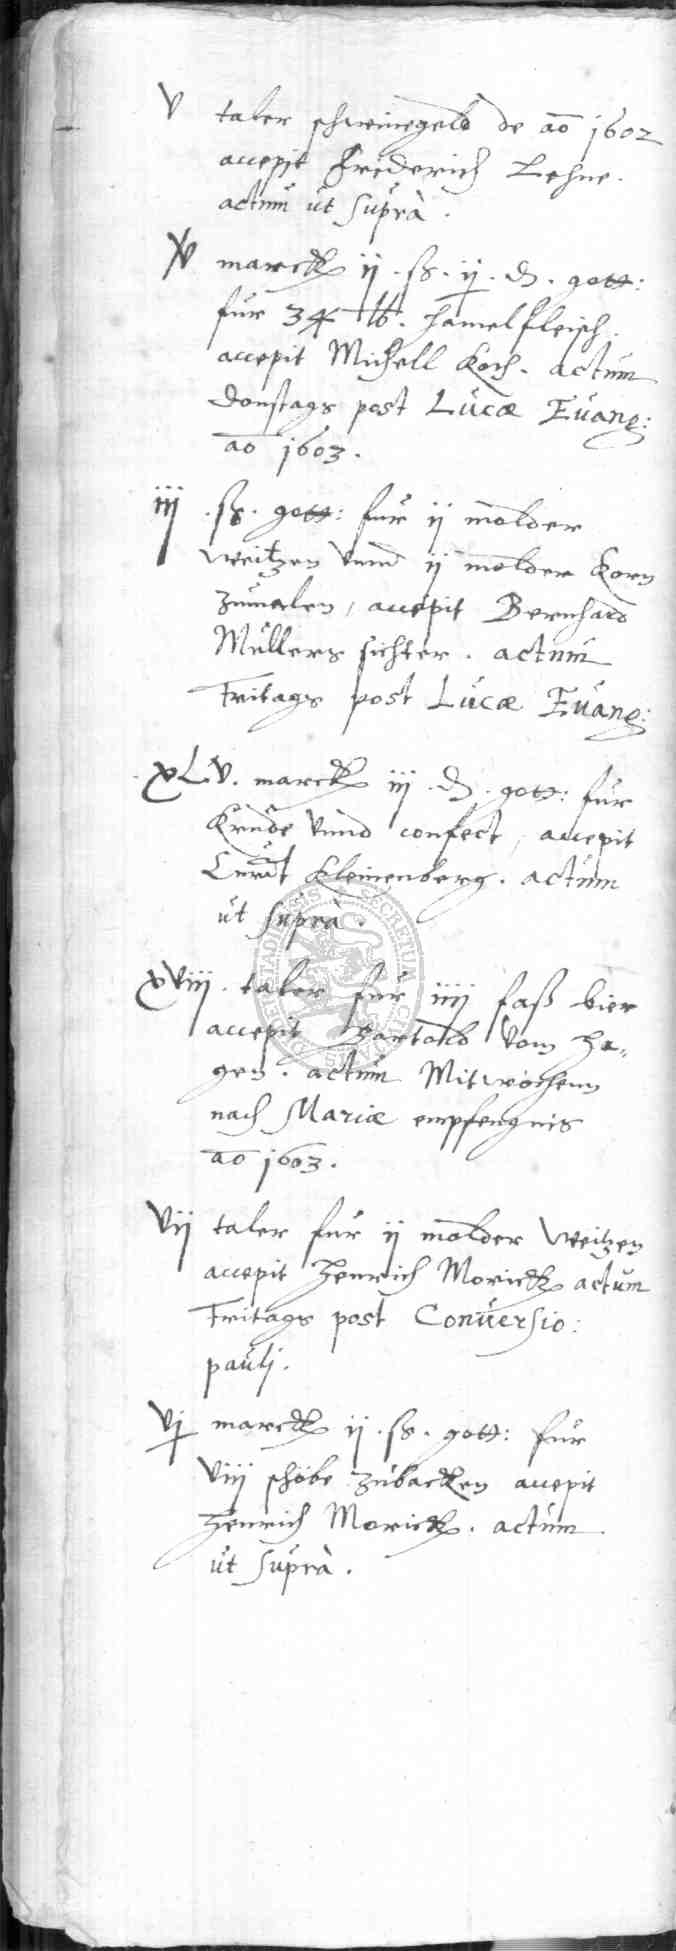 V taler schweinegeld de ao 1602
accepit Friderich Lehne.
actum ut suprà.
XV marck ij . ss . ij . d . gott:
fur 34 lb. hamelfleisch.
accepit Michell Koch. actum
Donstags post Lucæ Evang:
ao 1603.
iij . ss . gott: fur ij molder
weitzen vnnd ij molder Korn
zumalen, accepit Bernhard
Mullers sichter. actum
Fritags post Lucæ Evang:
XLV. marck iij . d . gott: fur
Krude vnnd confect, accepit
Curdt Kleinenberg. actum
ut suprà.
XViij . taler fur iiij faß bier
accepit Bartold vom Ha-
gen. actum Mitwochenn
nach Mariæ empfengnis
ao 1603.
Vij taler fur ij molder weitzen
accepit Henrich Morick actum
Fritags post Conversio:
pauli.
Vj marck ij . ss . gott: fur
Viij schöbe zubacken accepit
Henrich Morick. actum
ut suprà.
SECRETUM CIVITATIS